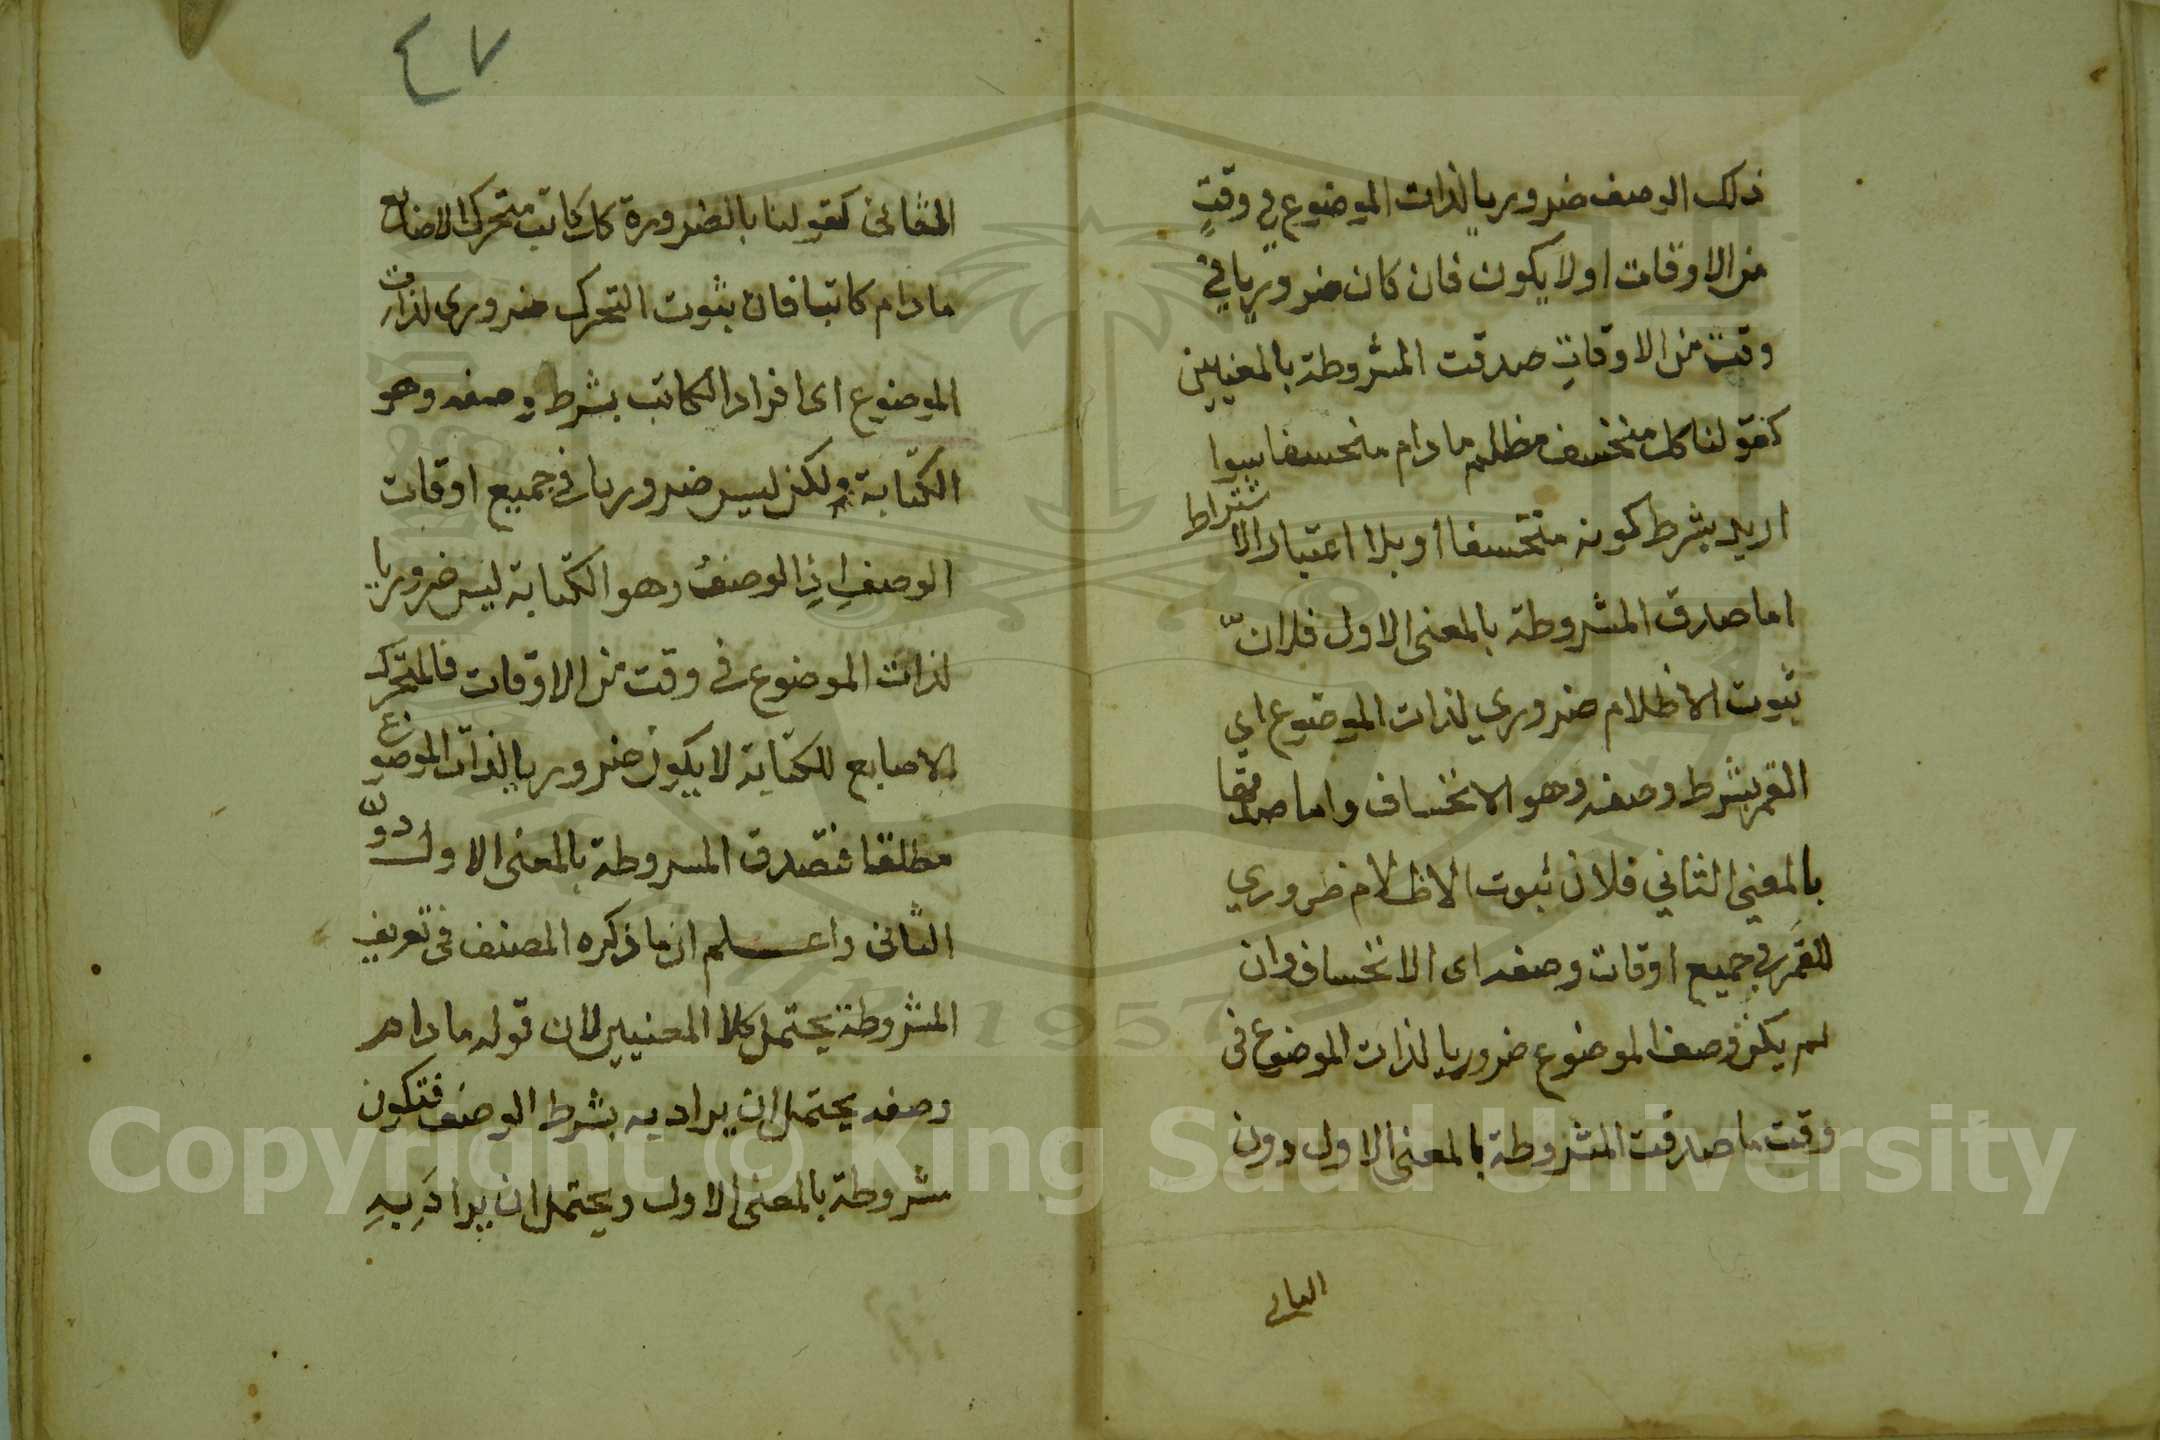 ذلك الوصف ضروريا لذات الموضوع في وقتٍ
من الاوقات او لا يكون فان كان ضروريا في
وقت من الاوقات صدقت المشروطة بالمعنيين
كقولنا كل منخسف مظلم ما دام منخسفا سوا
اريد بشرط كونه منخسفا او بلا اعتبار الاشتراط
اما صدق المشروطة بالمعنى الاول فلان
ثبوت الاظلام ضروري لذات الموضوع اي
القمر بشرط وصفه وهو الانخساف واما صدقها
بالمعنى الثاني فلان ثبوت الاظلام ضروري
للقمر في جميع اوقات وصفه اى الانخساف وان
لم يكن وصف الموضوع ضروريا لذات الموضوع فى
وقت ما صدقت المشروطة بالمعنى الاول دون
الثانى
٤٧
الثانى كقولنا بالضرورة كل كاتب متحرك الاصابع
ما دام كاتبا فان ثبوت التحرك ضرورى لذات
الموضوع اى افراد الكاتب بشرط وصفه وهو
الكتابة ولكن ليس ضروريا فى جميع اوقات
الوصف اذ الوصف وهو الكتابة ليس ضروريا
لذات الموضوع فى وقت من الاوقات فالمتحرك
الاصابع للكتابة لا يكون ضروريا لذات الموضوع
مطلقا فتصدق المشروطة بالمعنى الاول دون
الثانى واعلم ان ما ذكره المصنف فى تعريف
المشروطة يحتمل كلا المعنيين لان قوله ما دام
وصفه يحتمل ان يراد به بشرط الوصف فتكون
مشروطة بالمعنى الاول ويحتمل ان يرادَ بهِ
1957
Copyright © King Saud University